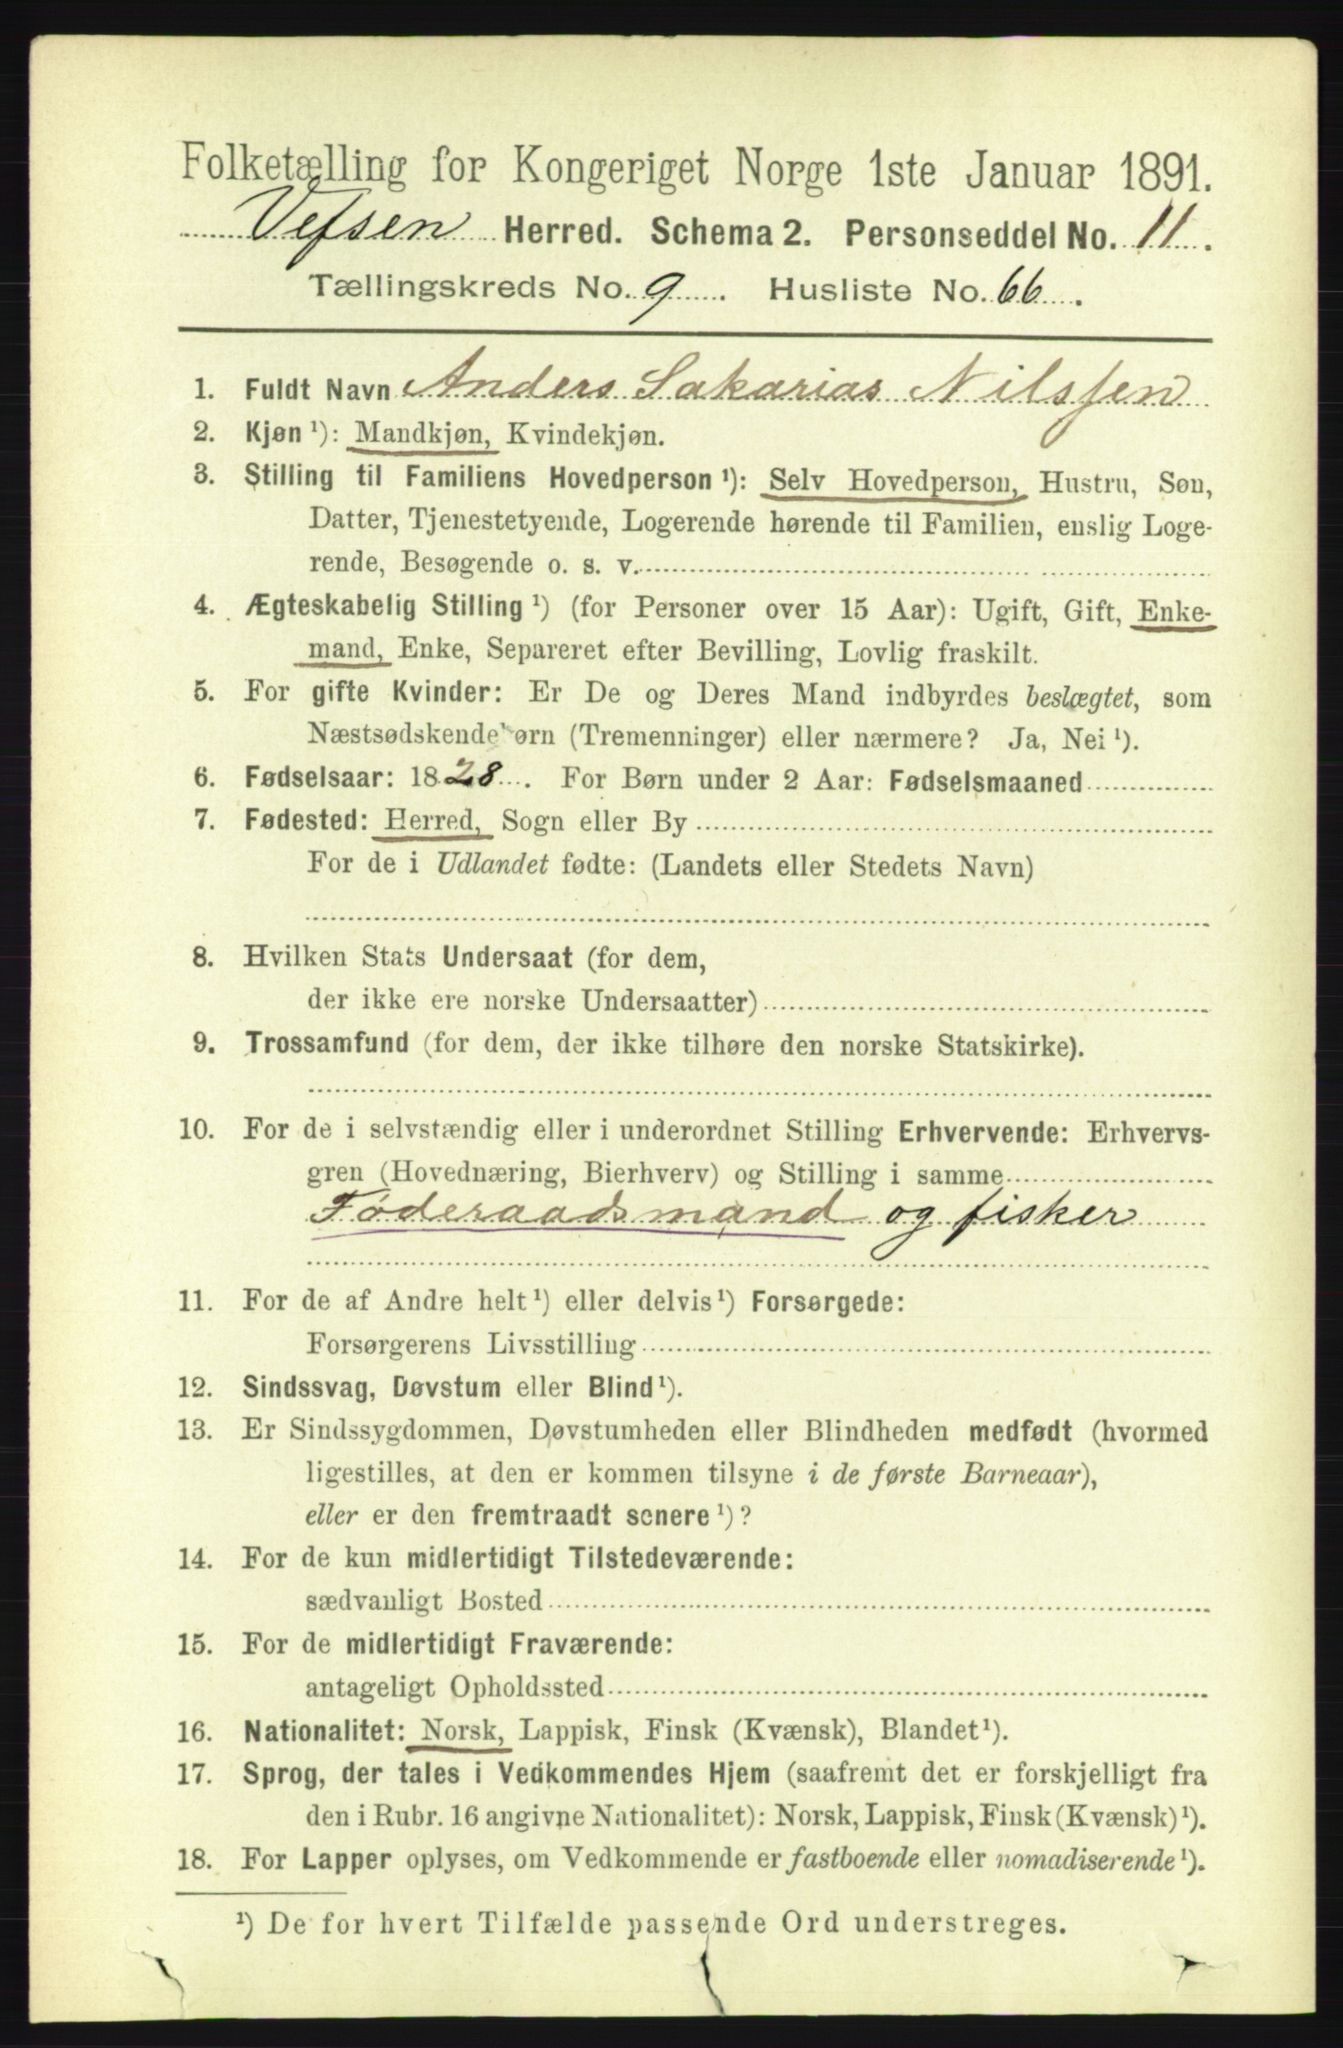 Folketælling for Kongeriget Norge 1ste Januar 1891.
Vefsen Herred. Schema 2. Personseddel No. 11.
Tællingskreds No. 9. Husliste No. 66.
1. Fuldt Navn Anders Sakarias Nilssen
2. Kjøn ¹): Mandkjøn, Kvindekjøn.
3. Stilling til Familiens Hovedperson ¹): Selv Hovedperson, Hustru, Søn,
Datter, Tjenestetyende, Logerende hørende til Familien, enslig Loge-
rende, Besøgende o. s. v.
4. Ægteskabelig Stilling ¹) (for Personer over 15 Aar): Ugift, Gift, Enke-
mand, Enke, Separeret efter Bevilling, Lovlig fraskilt.
5. For gifte Kvinder: Er De og Deres Mand indbyrdes beslægtet, som
Næstsødskendebørn (Tremenninger) eller nærmere? Ja, Nei ¹).
6. Fødselsaar: 1828. For Børn under 2 Aar: Fødselsmaaned
7. Fødested: Herred, Sogn eller By
For de i Udlandet fødte: (Landets eller Stedets Navn)
8. Hvilken Stats Undersaat (for dem,
der ikke ere norske Undersaatter)
9. Trossamfund (for dem, der ikke tilhøre den norske Statskirke).
10. For de i selvstændig eller i underordnet Stilling Erhvervende: Erhvervs-
gren (Hovednæring, Bierhverv) og Stilling i samme
Føderaadsmand og fisker
11. For de af Andre helt ¹) eller delvis ¹) Forsørgede:
Forsørgerens Livsstilling
12. Sindssvag, Døvstum eller Blind ¹).
13. Er Sindssygdommen, Døvstumheden eller Blindheden medfødt (hvormed
ligestilles, at den er kommen tilsyne i de første Barneaar),
eller er den fremtraadt senere ¹)?
14. For de kun midlertidigt Tilstedeværende:
sædvanligt Bosted
15. For de midlertidigt Fraværende:
antageligt Opholdssted
16. Nationalitet: Norsk, Lappisk, Finsk (Kvænsk), Blandet ¹).
17. Sprog, der tales i Vedkommendes Hjem (saafremt det er forskjelligt fra
den i Rubr. 16 angivne Nationalitet): Norsk, Lappisk, Finsk (Kvænsk) ¹).
18. For Lapper oplyses, om Vedkommende er fastboende eller nomadiserende ¹).
¹) De for hvert Tilfælde passende Ord understreges.